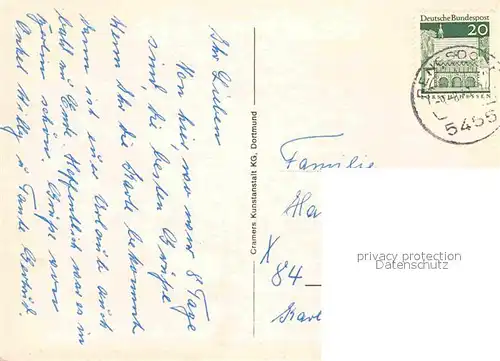 Ihr Lieben
Von hier, wo wir 8 Tage
sind, die besten Grüße
Wenn Ihr die Karte bekommt
dann ist euer Urlaub auch
bald zu Ende. Hoffentlich war es in
schön. Grüße von
Onkel Willy u Tante Bertrud.
Cramers Kunstanstalt KG, Dortmund
Deutsche Bundespost
20
5455
Familie
Ha
X
84
Karl
privacy protection
Datenschutz